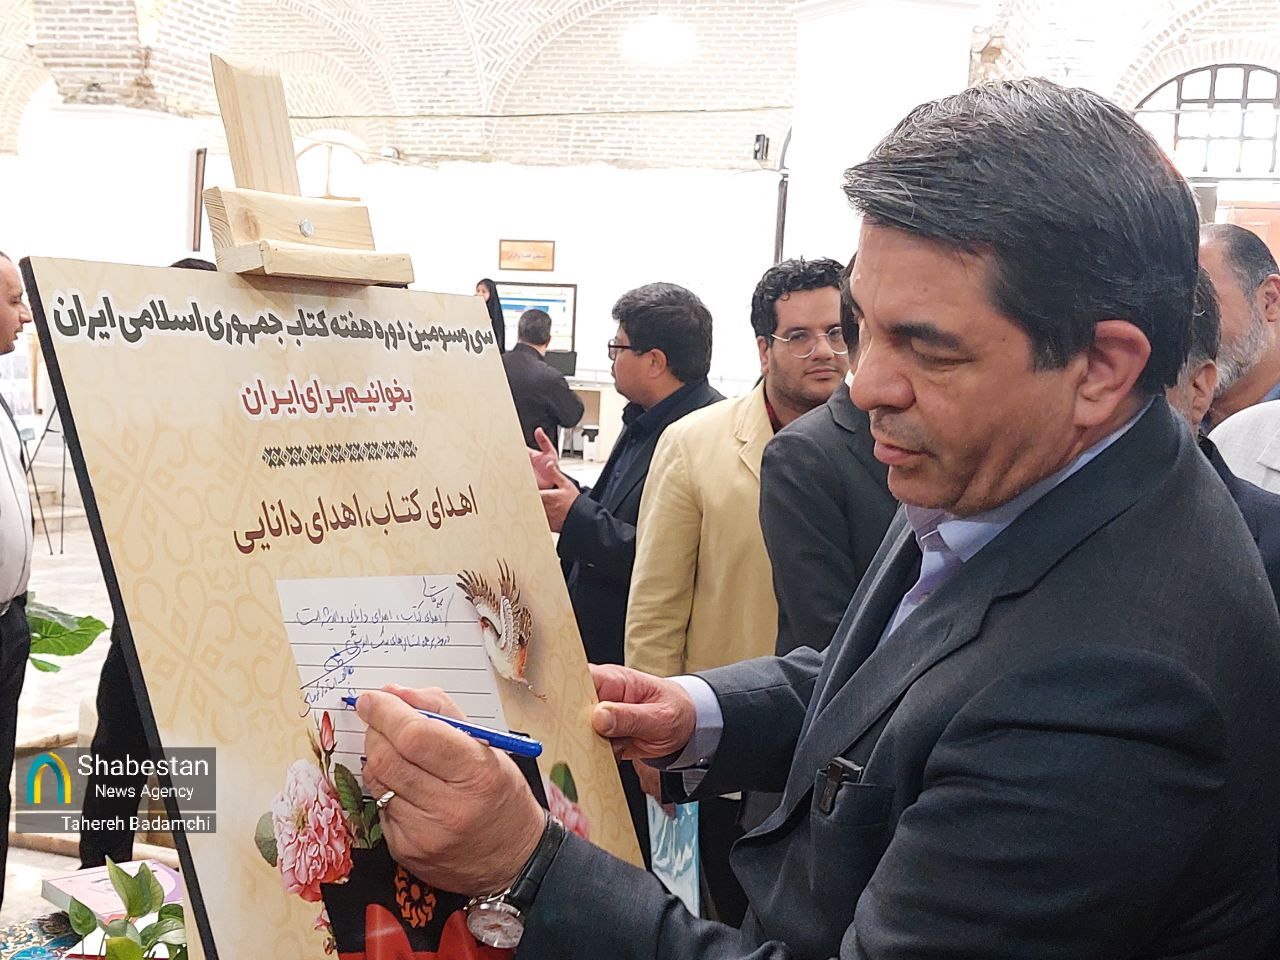 سی و سومین دوره هفته کتاب جمهوری اسلامی ایران
بخوانیم برای ایران
اهدای کتاب، اهدای دانایی
اهدای کتاب، اهدای دانایی و اندیشه است
Shabestan
News Agency
Tahereh Badamchi